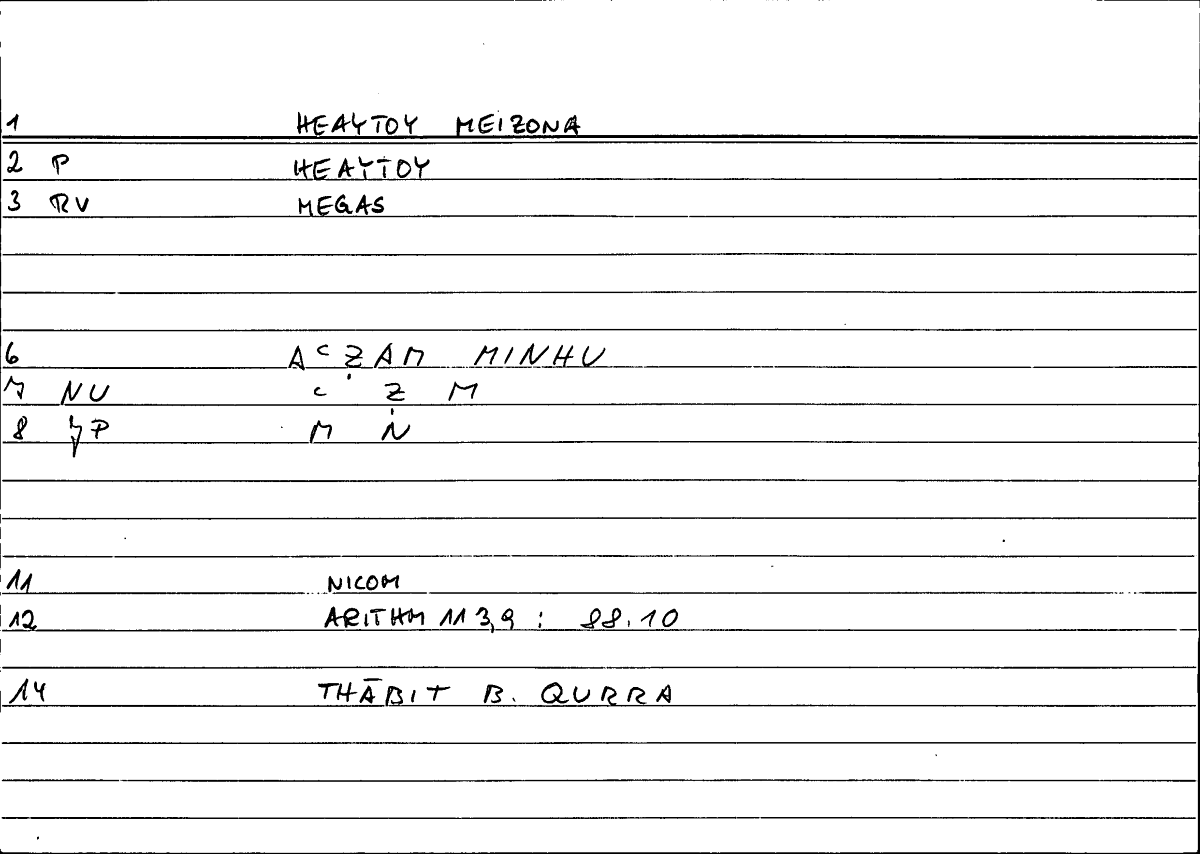 1 HEAYTOY MEIZONA
2 P HEAYTOY
3 RV MEGAS
6 AʿẒAM MINHU
7 NU ʿ Ẓ M
8 P M N
11 NICOM
12 ARITHM 113,9 : 88.10
14 THĀBIT B. QURRA